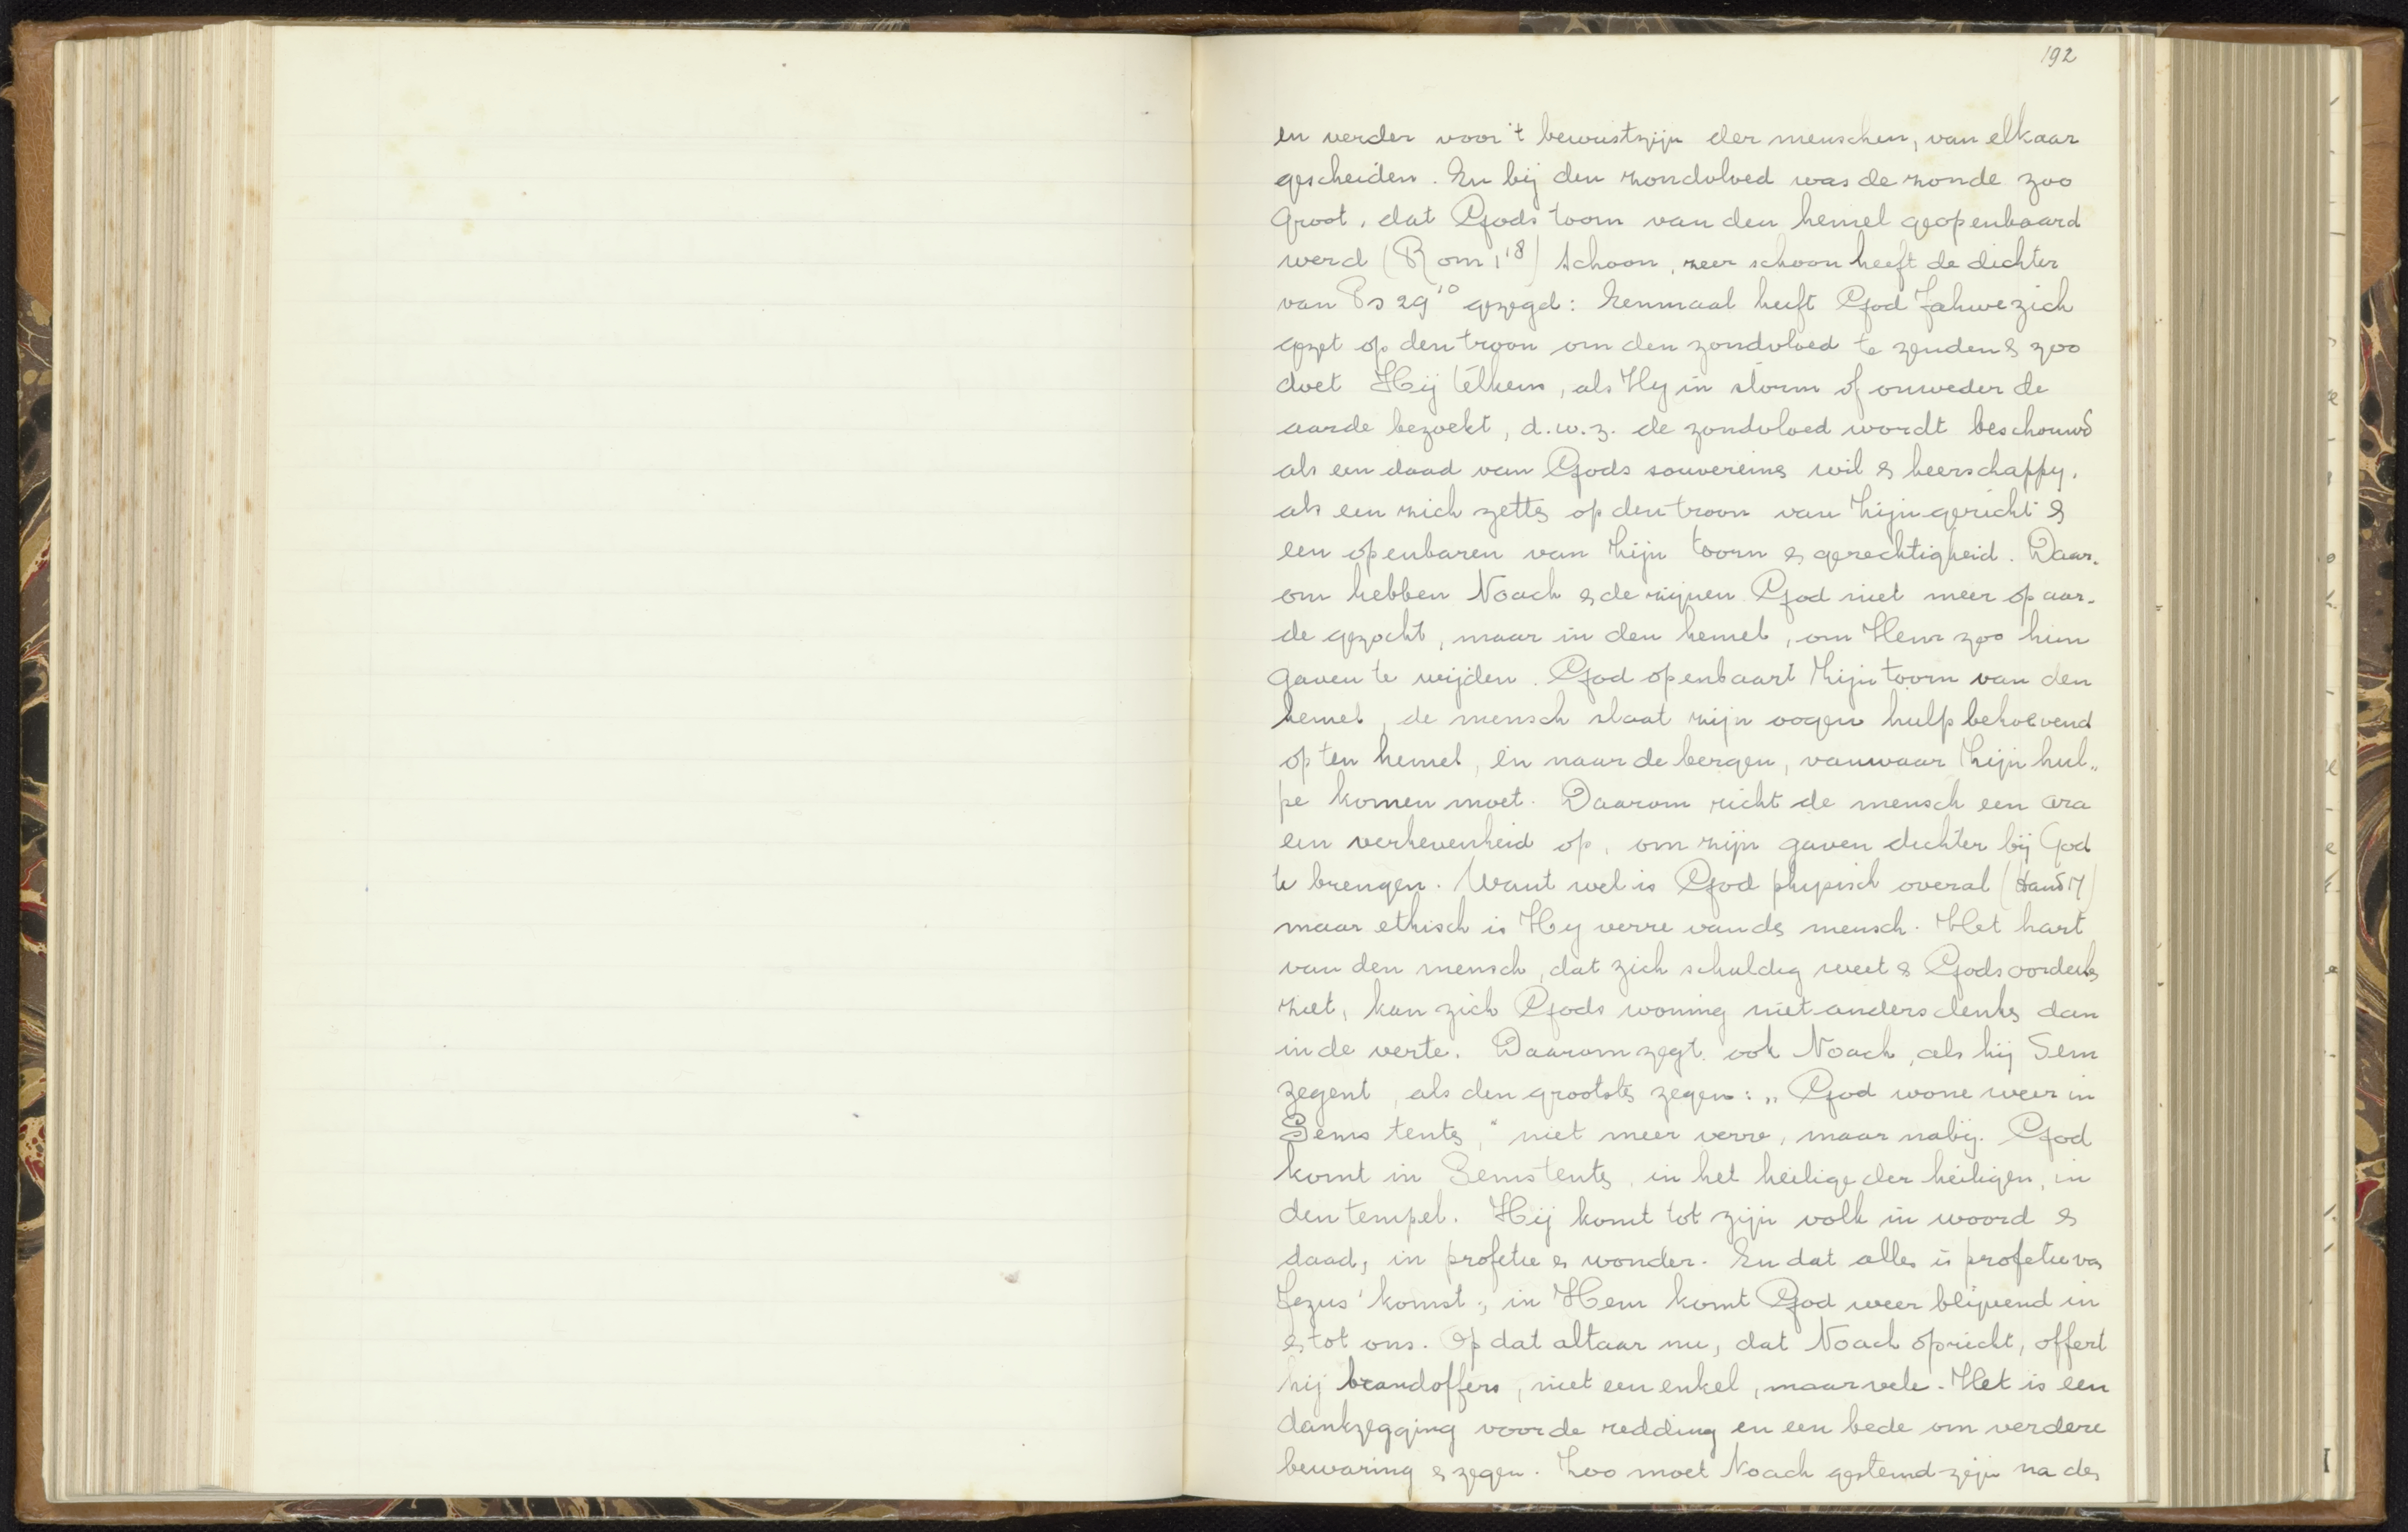 192
en verder voor 't bewustzijn der menschen, van elkaar
gescheiden. En bij den zondvloed was de zonde zoo
groot, dat Gods toorn van den hemel geopenbaard
werd (Rom 1 18) Schoon, zeer schoon heeft de dichter
van Ps 29 10 gezegd: Eenmaal heeft God Jahwe zich
gezet op den troon om den zondvloed te zenden & zoo
doet Hij télkens, als Hy in storm of onweder de
aarde bezoekt, d.w.z. de zondvloed wordt beschouwd
als een daad van Gods souvereine wil & heerschappy,
als een zich zetten op den troon van Zijn gericht &
een openbaren van Zijn toorn & gerechtigheid. Daar-
om hebben Noach & de zijnen God niet meer op aar-
de gezocht, maar in den hemel, om Hem zoo hun
gaven te wijden. God openbaart Zijn toorn van den
hemel, de mensch slaat zijn oogen hulpbehoevend
op ten hemel, en naar de bergen, vanwaar Zijn hul„
pe komen moet. Daarom richt de mensch een ara
een verhevenheid op, om zijn gaven dichter bij God
te brengen. Want wel is God physisch overal (Hand 17)
maar ethisch is Hy verre van de mensch. Het hart
van den mensch, dat zich schuldig weet & Gods oordeelen
ziet, kan zich Gods woning niet anders denken dan
in de verte. Daarom zegt ook Noach, als hij Sem
zegent, als den grootsten zegen: „God wone weer in
Sems tenten," niet meer verre, maar nabij. God
komt in Sems tenten, in het heilige der heiligen, in
den tempel. Hij komt tot zijn volk in woord &
daad, in profetie & wonder. En dat alles is profetie van
Jezus' komst; in Hem komt God weer blijvend in
& tot ons. Op dat altaar nu, dat Noach opricht, offert
hij brandoffers, niet een enkel, maar vele. Het is een
dankzegging voor de redding en een bede om verdere
bewaring & zegen. Zoo moet Noach gestemd zijn na den